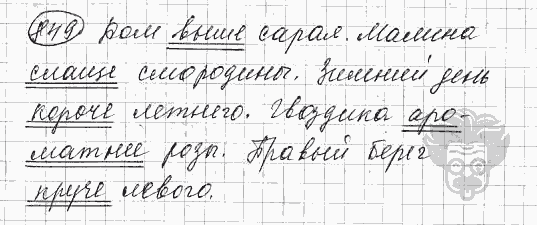 849 Дом выше сарая. Малина
слаще смородины. Зимний день
короче летнего. Гвоздика аро-
матнее розы. Правый берег
круче левого.